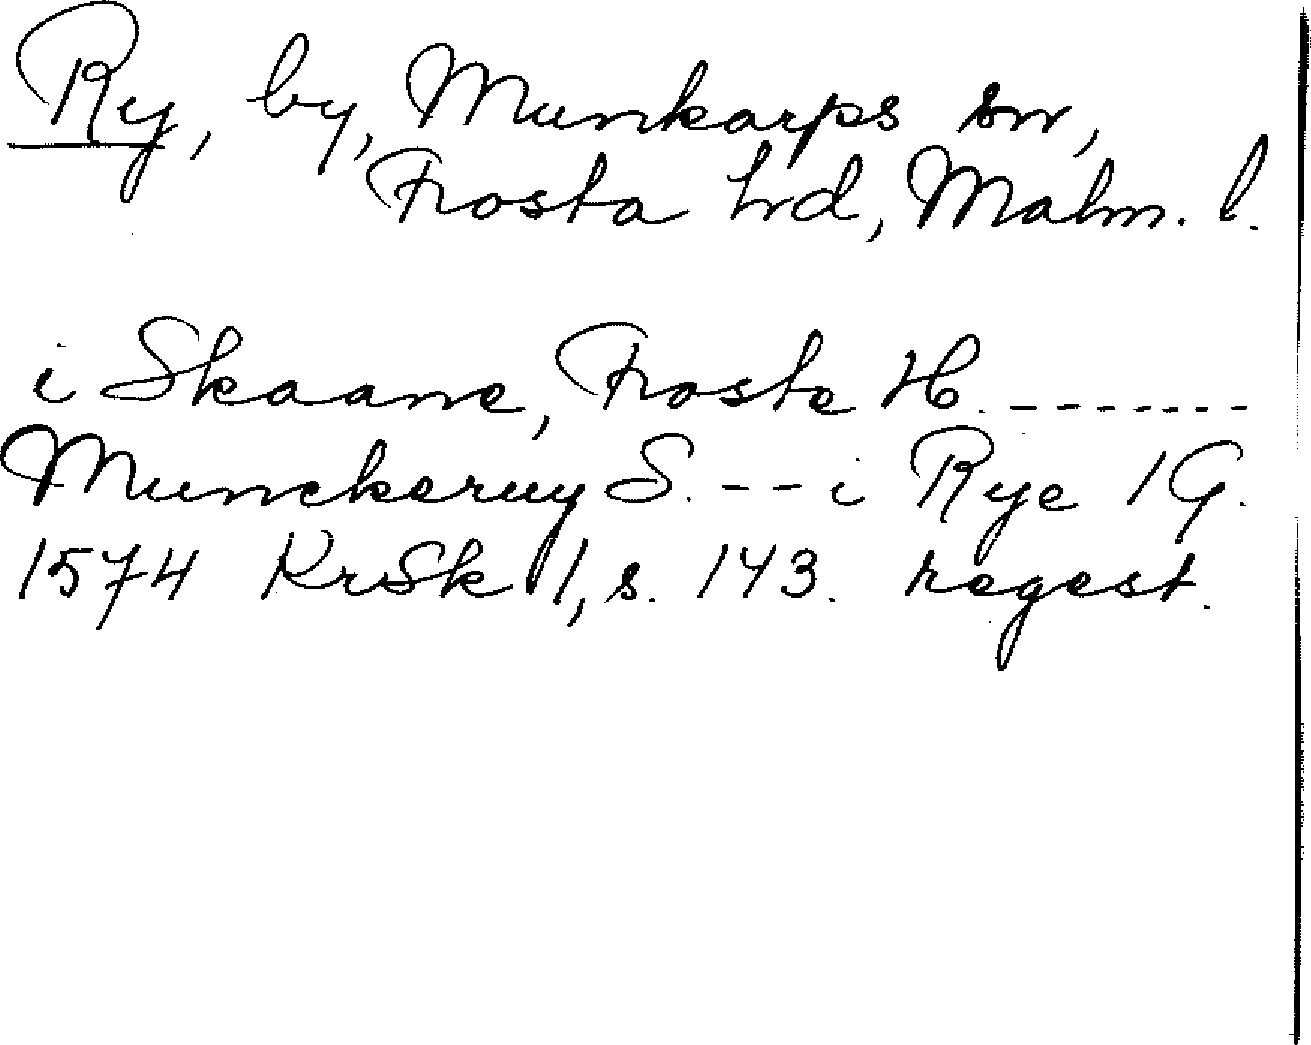 Ry, by, Munkarps sn,
Frosta hrd, Malm. l.
i Skaane, Froste H. - - - - - - -
Munckeruy S. - - - i Rye 1 G.
1574 KrSk 1, s. 143. regest.